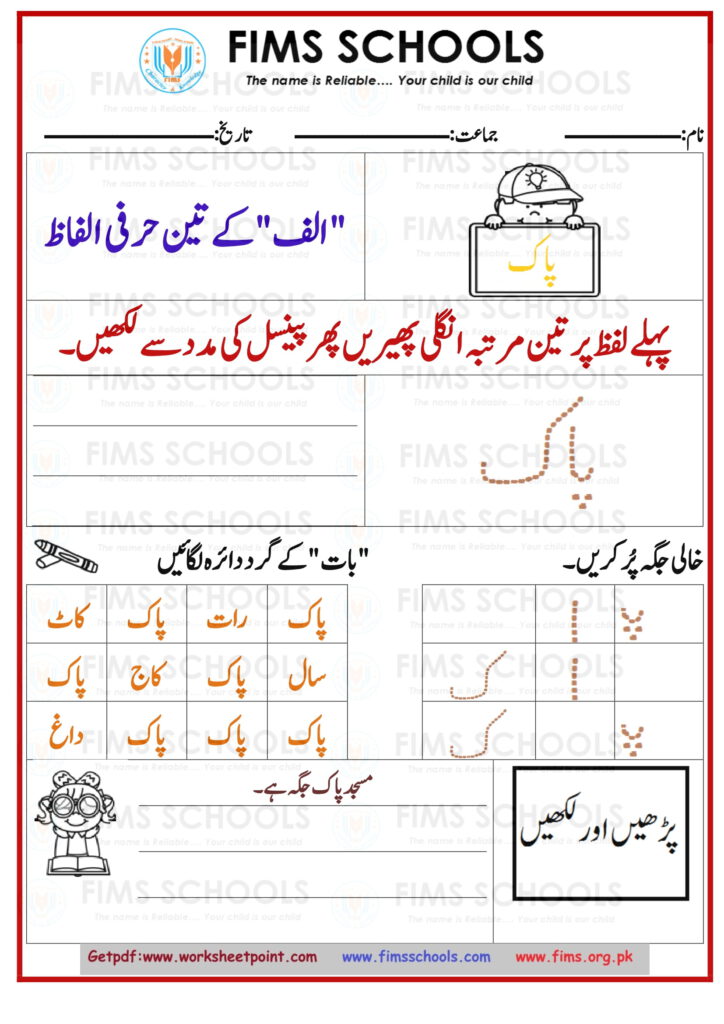 FIMS SCHOOLS
The name is Reliable.... Your child is our child
نام: جماعت: تاریخ:
پاک
"الف" کے تین حرفی الفاظ
پہلے لفظ پر تین مرتبہ انگلی پھیریں پھر پینسل کی مدد سے لکھیں۔
پاک
خالی جگہ پُر کریں۔
"بات" کے گرد دائرہ لگائیں
پ ا
ا ک
پ ک
پاک رات پاک کاٹ
سال پاک کاج پاک
پاک پاک پاک داغ
پڑھیں اور لکھیں
مسجد پاک جگہ ہے۔
Getpdf:www.worksheetpoint.com www.fimsschools.com www.fims.org.pk